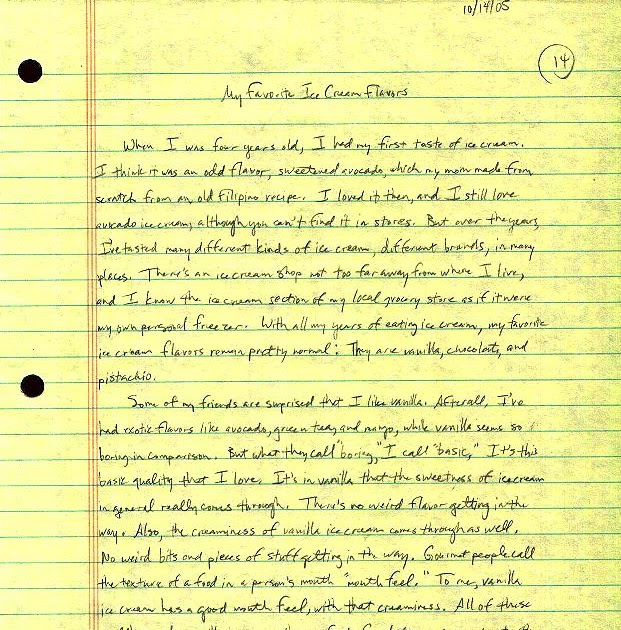 10/14/05
14
My Favorite Ice Cream Flavors
When I was four years old, I had my first taste of ice cream.
I think it was an odd flavor, sweetened avocado, which my mom made from
scratch from an old Filipino recipe. I loved it then, and I still love
avocado ice cream, although you can't find it in stores. But over the years,
I've tasted many different kinds of ice cream, different brands, in many
places. There's an ice cream shop not too far away from where I live,
and I know the ice cream section of my local grocery store as if it were
my own personal freezer. With all my years of eating ice cream, my favorite
ice cream flavors remain pretty normal: They are vanilla, chocolate, and
pistachio.
Some of my friends are surprised that I like vanilla. Afterall, I've
had exotic flavors like avocado, green tea, and mango, while vanilla seems so
boring in comparison. But what they call "boring," I call "basic," It's this
basic quality that I love. It's in vanilla that the sweetness of ice cream
in general really comes through. There's no weird flavor getting in the
way. Also, the creaminess of vanilla ice cream comes through as well.
No weird bits and pieces of stuff getting in the way. Gourmet people call
the texture of a food in a person's mouth "mouth feel." To me, vanilla
ice cream has a good mouth feel, with that creaminess. All of these